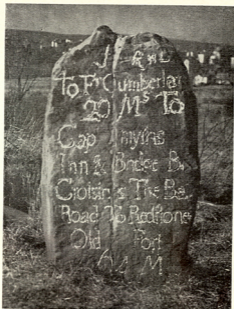 To Ft Cumberlan
29 Ms To
Cap Smyths
Inn & Bridge B
Crosings The Be
Road To Redstone
Old Fort
M